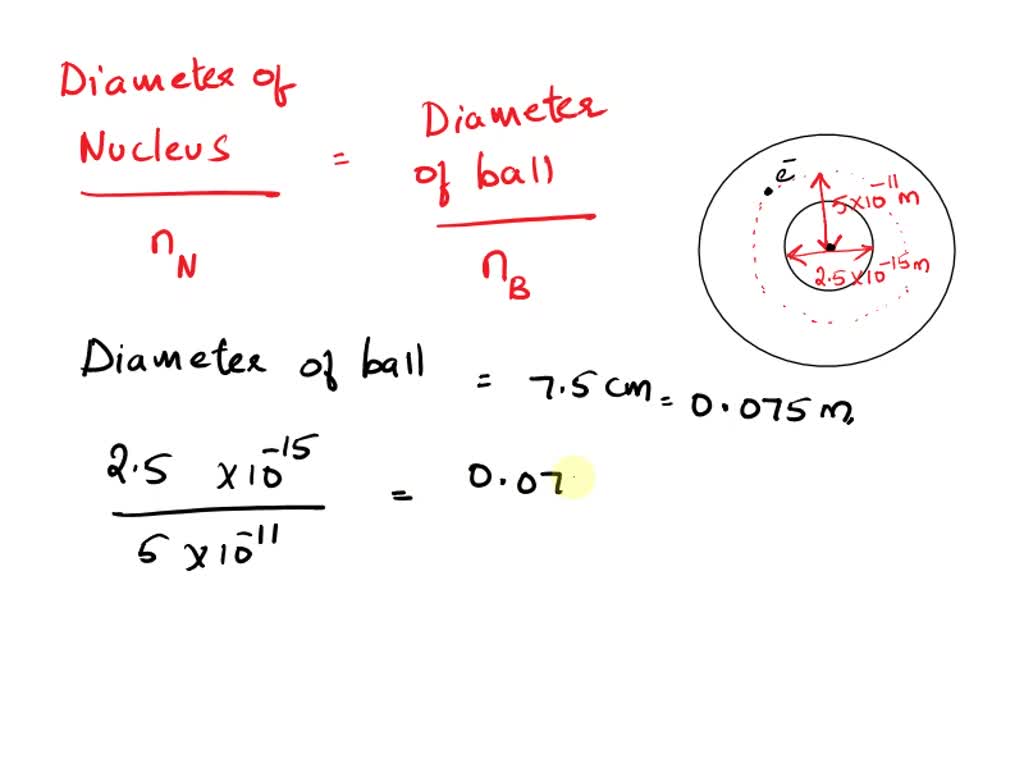 Diameter of
Nucleus
n_N
=
Diameter
of ball
n_B
e⁻
5×10⁻¹¹ m
2.5×10⁻¹⁵ m
Diameter of ball = 7.5 cm = 0.075 m
2.5 ×10⁻¹⁵
5 ×10⁻¹¹
= 0.07